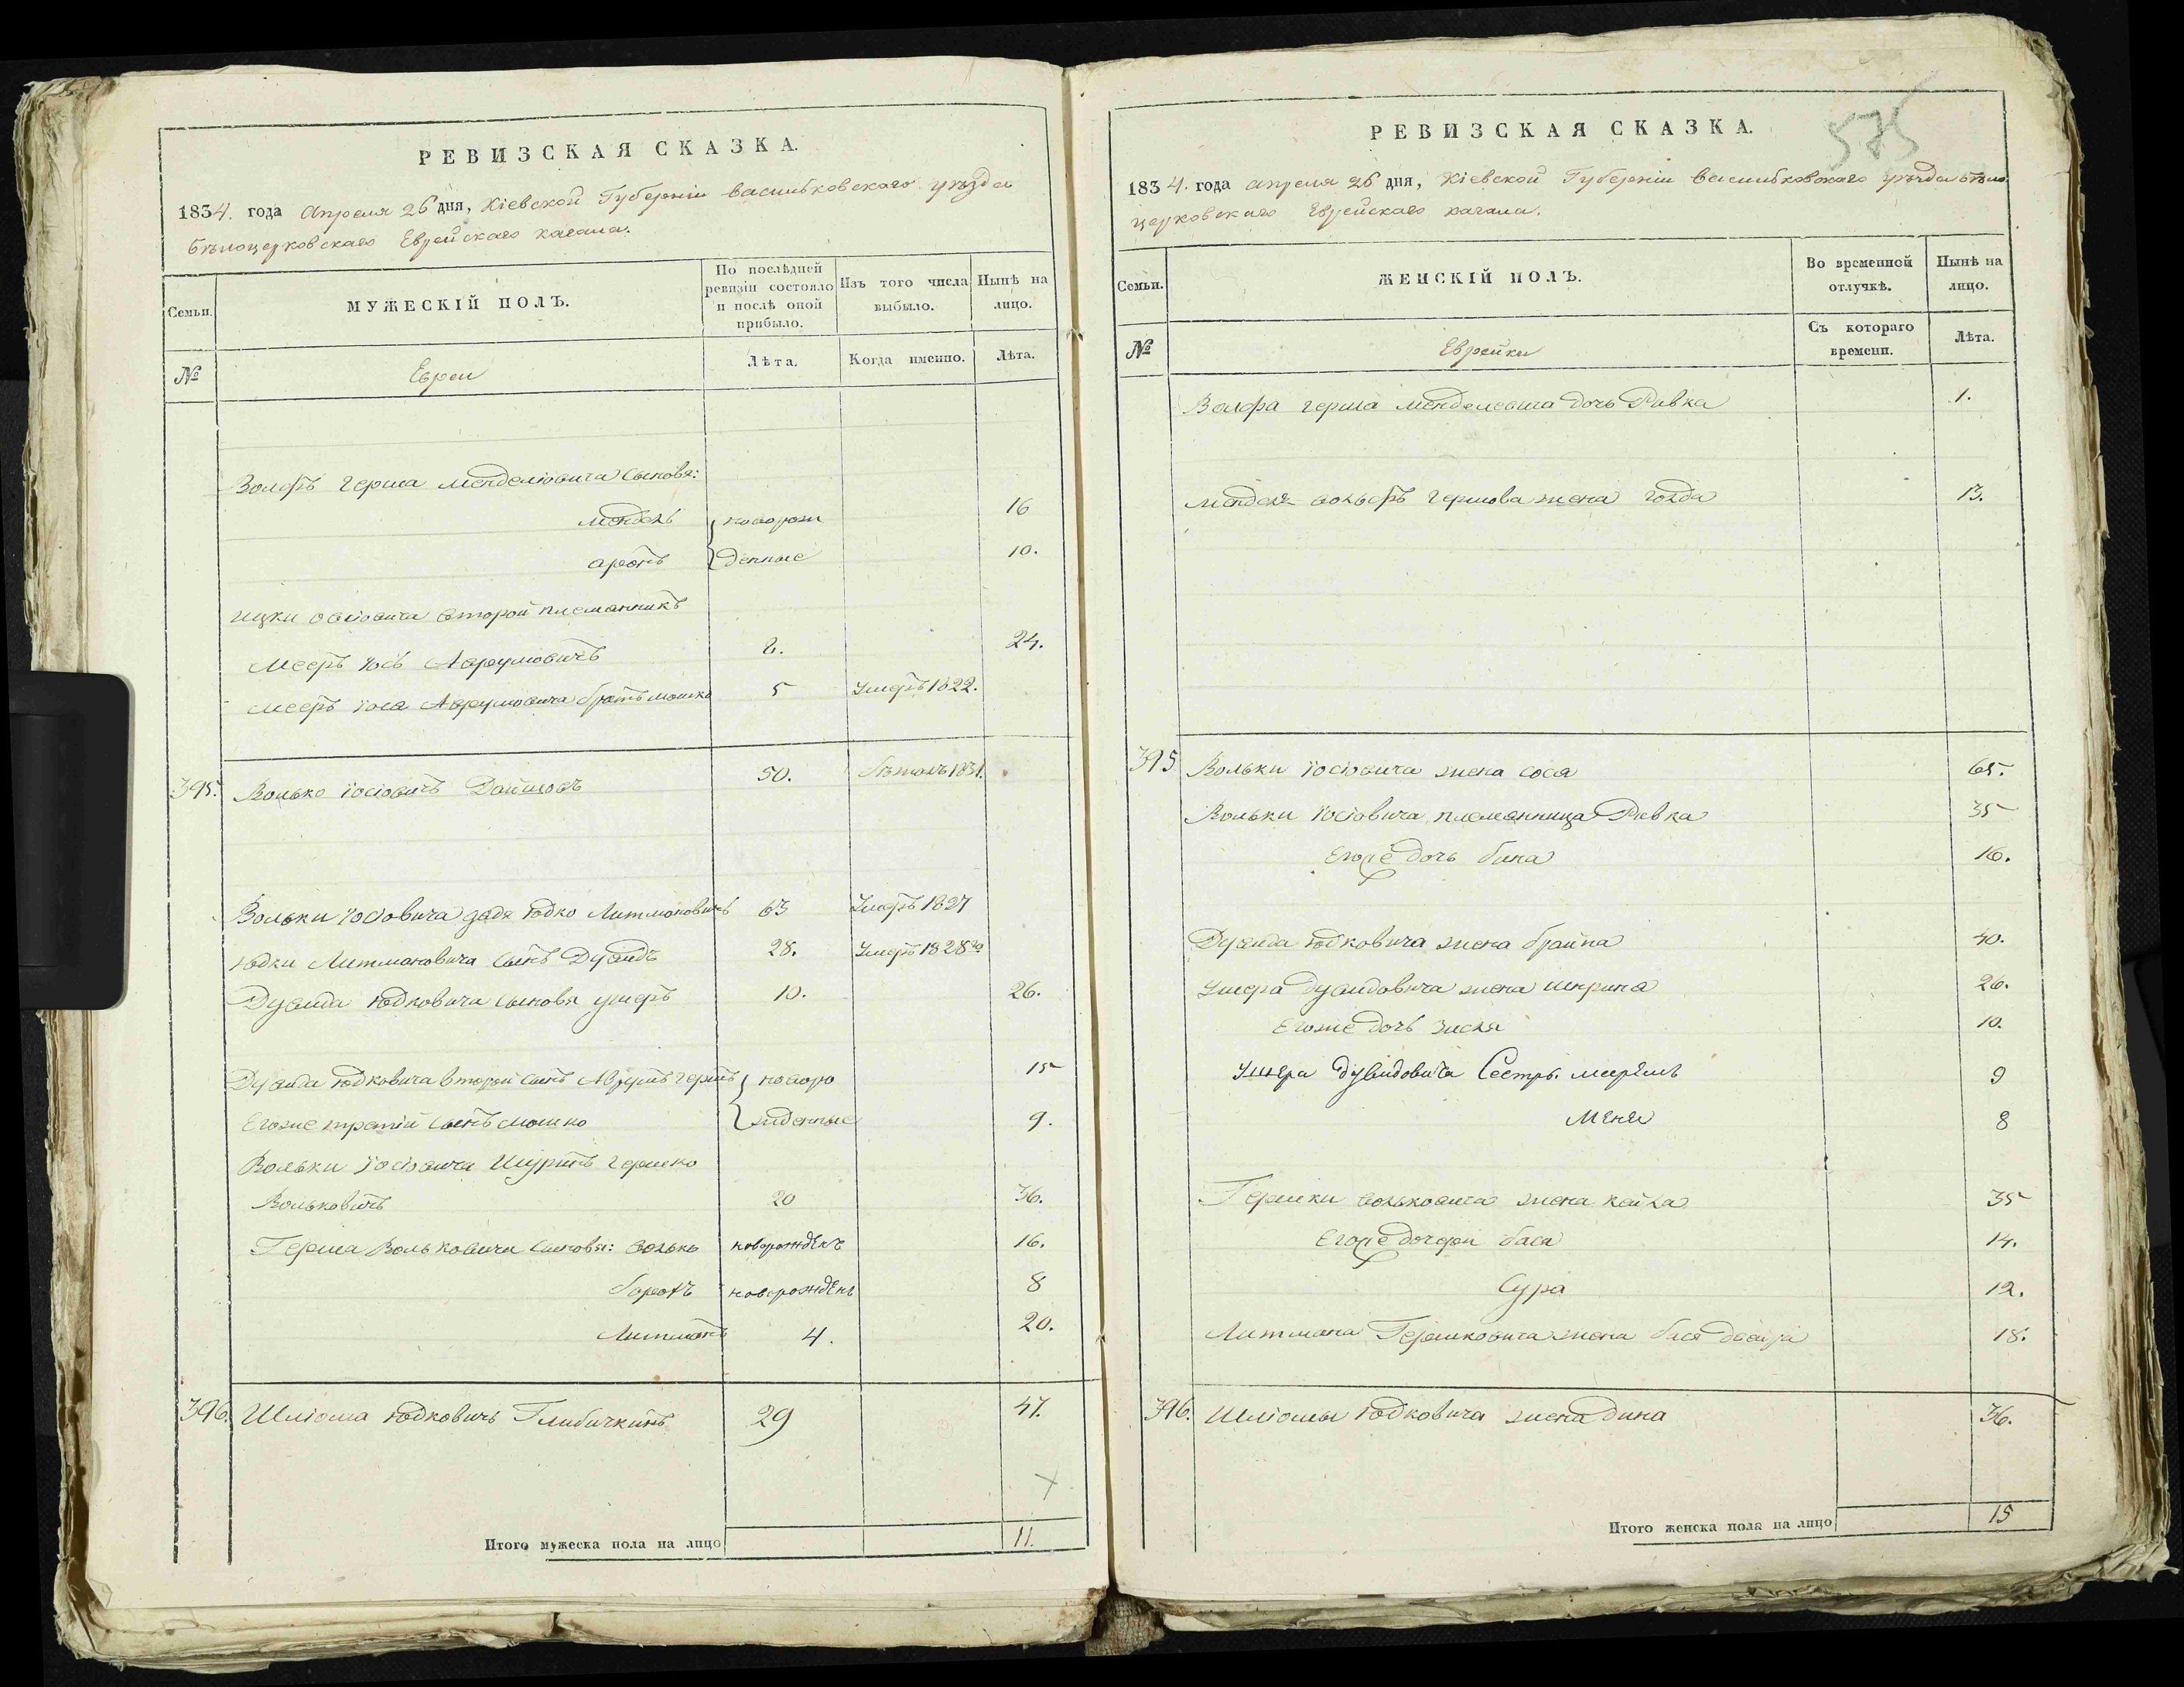 РЕВИЗСКАЯ СКАЗКА.
1834. года Апреля 26 дня, Кіевской Губерніи Васильковскаго уѣзда
Бѣлоцерковскаго Еврейскаго кагала.
Семьи.
МУЖЕСКІЙ ПОЛЪ.
По послѣдней ревизіи состояло и послѣ оной прибыло.
Изъ того числа выбыло.
Нынѣ на лицо.
№
Евреи
Лѣта.
Когда именно.
Лѣта.
Волфъ Герша Менделіовича сыновя:
Мендель новорож 16
Аронъ денные 10.
Ицки Овсіовича второй племянникъ
Мееръ Іось Аврумовичъ 24.
Мееръ Іося Аврумовича братъ Мошко 5 Умеръ 1822.
395. Волько Іосіовичъ 50. 1831.
Вольки Іосіовича дядя Юдко Литмановичъ 63 Умеръ 1827
Юдки Литмановича сынъ Дувидъ 28. Умеръ 1828го
Дувида Юдковича сыновя Ушеръ 10. 26.
Дувида Юдковича второй сынъ Аврумъ Гершъ новоро 15
Егоже третій сынъ Мошко жденные 9.
Вольки Іосіовича Шуринъ Гершко
Вольковичъ 20 36.
Герша Вольковича сыновя: Волько новорожденъ 16.
Борохъ новорожденъ 8
Литманъ 4. 20.
396. Шліома Юдковичъ Глибичкинъ 29 47.
Итого мужеска пола на лицо 11.
575
РЕВИЗСКАЯ СКАЗКА.
1834. года апреля 26 дня, Кіевской Губерніи Васильковскаго уѣзда Бѣло
церковскаго Еврейскаго кагала.
Семьи.
ЖЕНСКІЙ ПОЛЪ.
Во временной отлучкѣ.
Нынѣ на лицо.
№
Еврейки
Съ котораго времени.
Лѣта.
Волфа Герша Менделевича дочь Ривка 1.
Менделя Вольфъ Гершова жена Голда 13.
395 Вольки Іосіовича жена Сося 65.
Вольки Іосіовича племянница Ривка 35
Егоже дочь Бина 16.
Дувида Юдковича жена Брайна 40.
Ушера Дувидовича жена Шприна 26.
Егоже дочь Зисля 10.
Ушера Дувидовича Сестры. Мирѣмъ 9
Меня 8
Гершки Вольковича жена Кейла 35
Егоже дочери Бася 14.
Сура 12.
Литмана Гершковича жена Бася Двойра 18.
396. Шліомы Юдковича жена Дина 36.
Итого женска пола на лицо 15